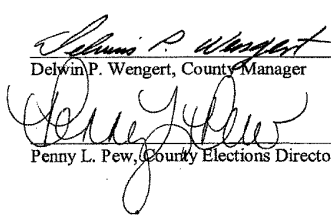 Delwin P. Wengert
Delwin P. Wengert, County Manager
Penny L. Pew
Penny L. Pew, County Elections Directo